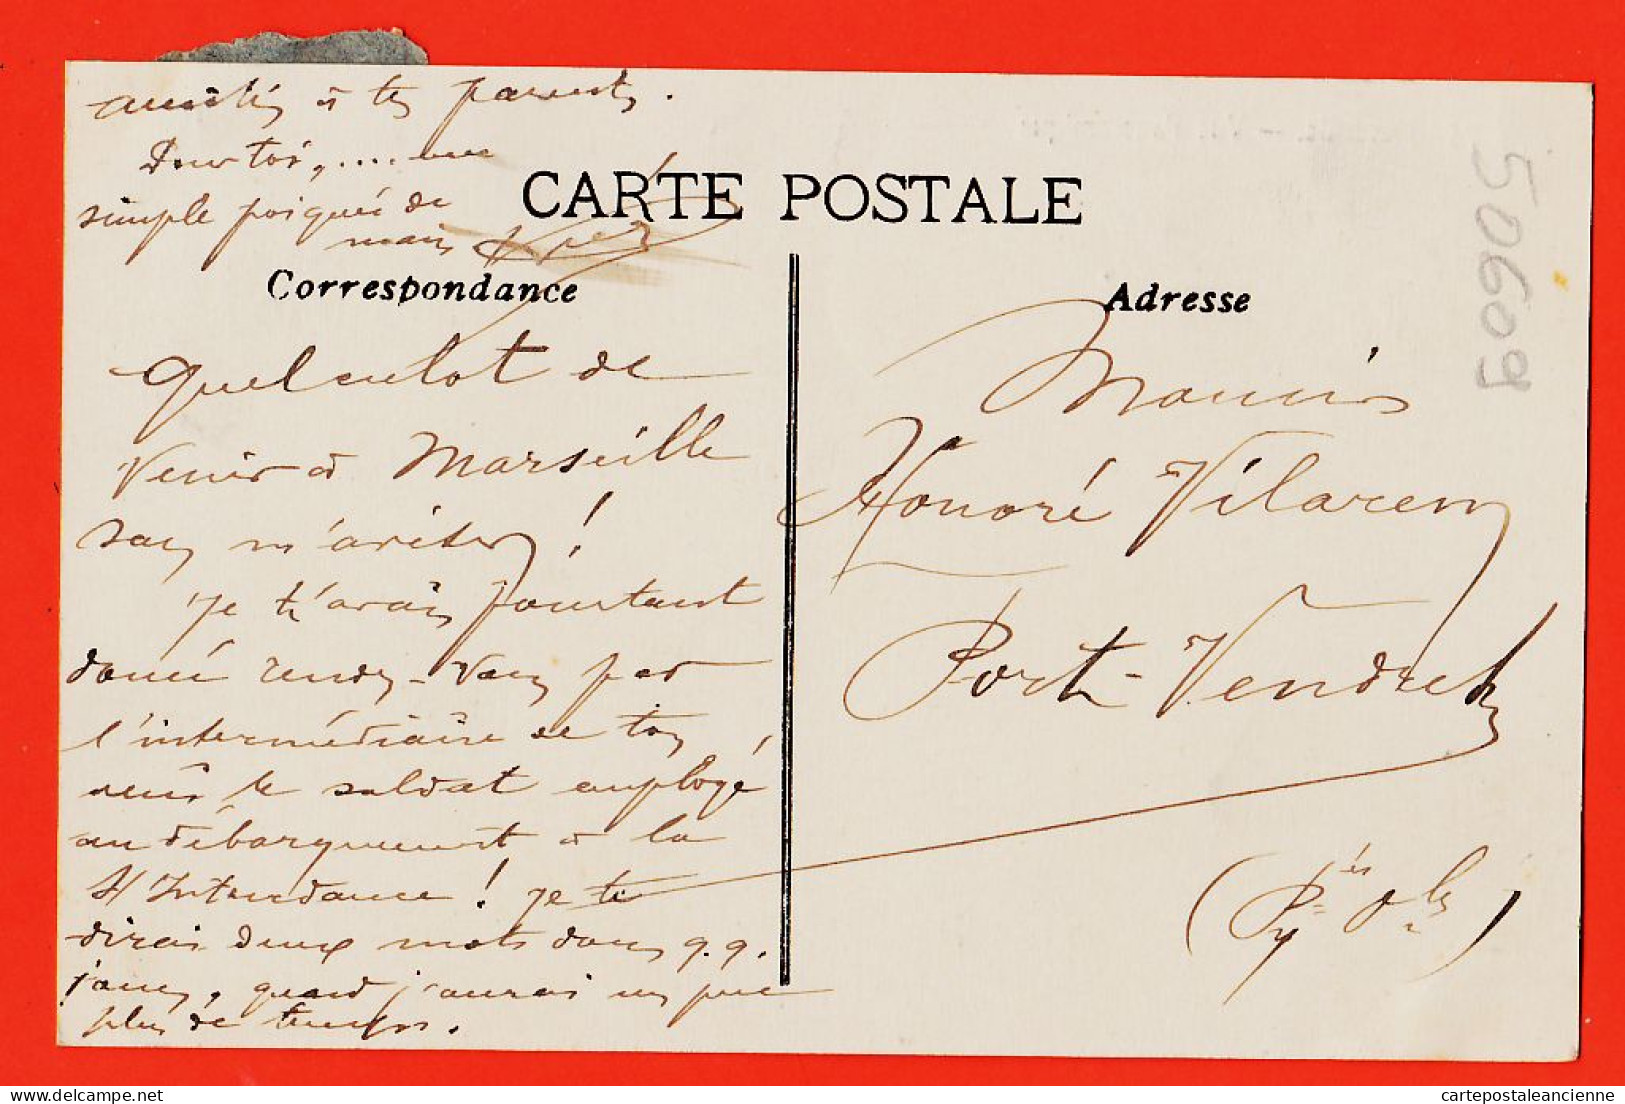 amitiés à tes parents.
Pour toi, .... une
simple poignée de
main
CARTE POSTALE
Correspondance
Quel culot de
Venir à Marseille
sans m'aviser !
Je t'avais pourtant
donné rendez-vous par
l'intermédiaire de ton
ami le soldat employé
au débarquement à la
S/Intendance ! Je te
dirai deux mots dans q.q.
jours, quand j'aurai un peu
plus de temps.
Adresse
Honoré Vilarem
Port-Vendres
(Pyées Oles)
50609
cartepostaleancienne